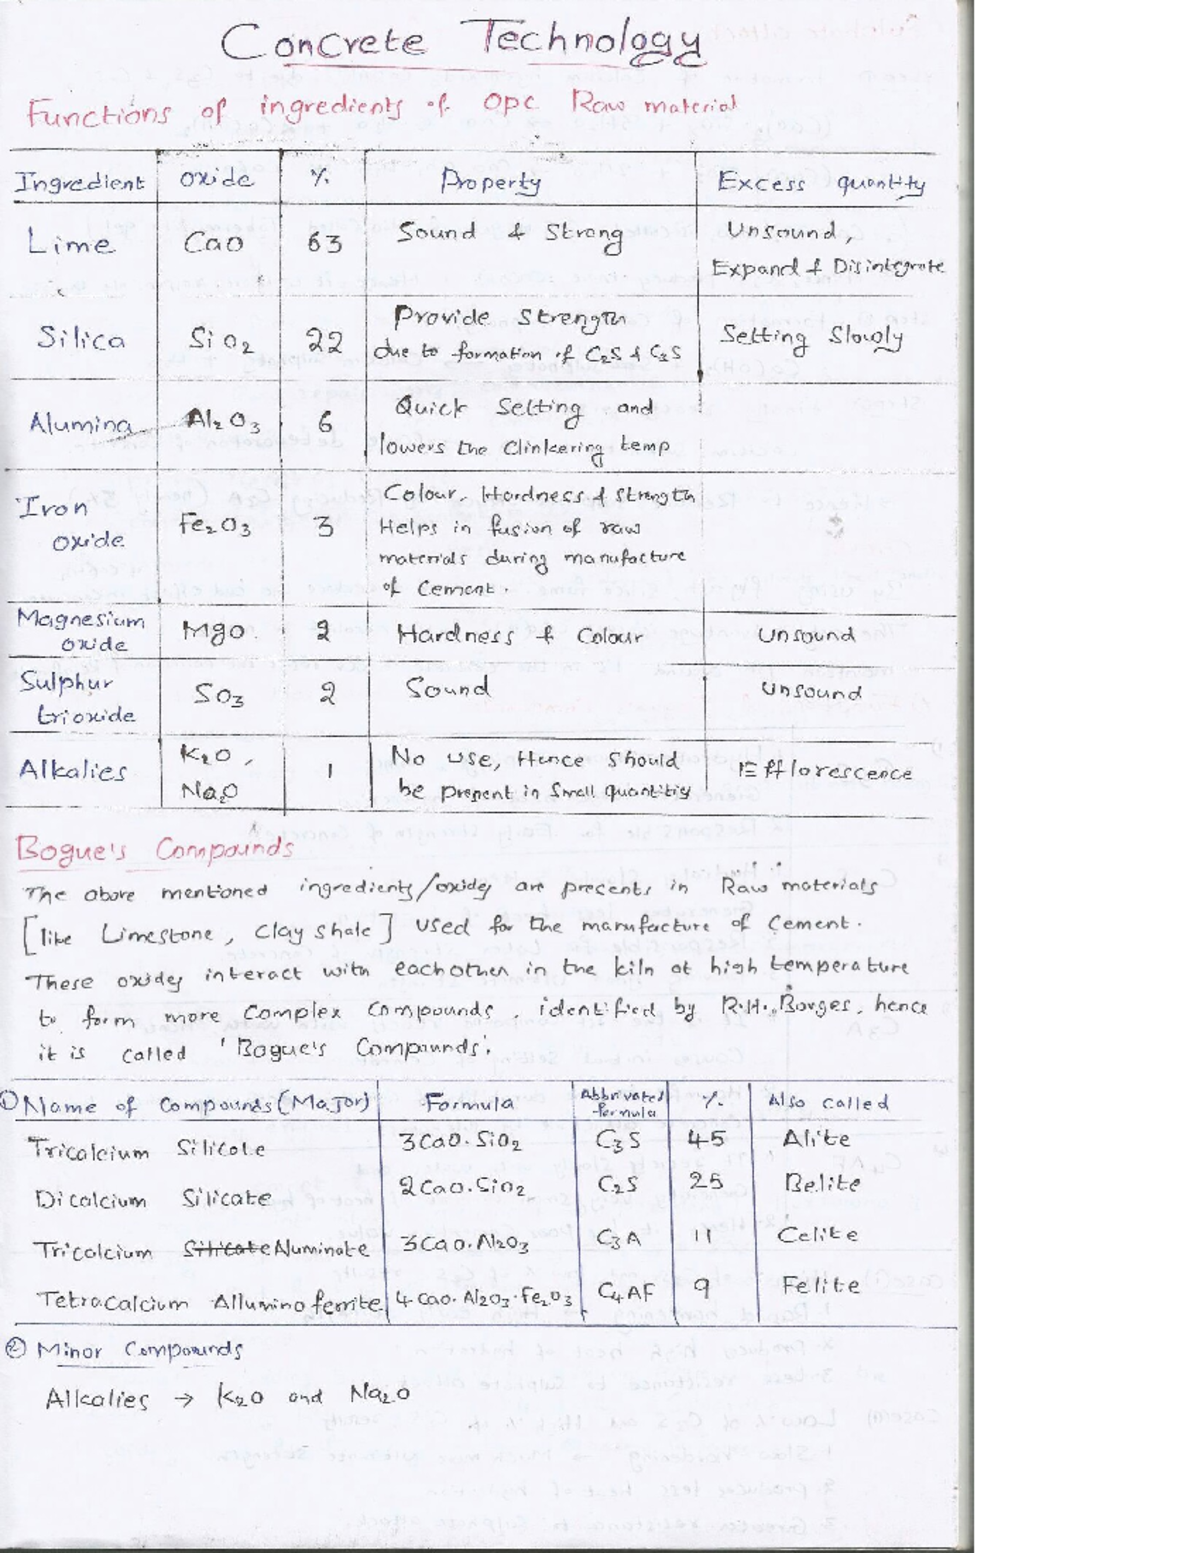 Concrete Technology
Functions of ingredients of OPC Raw material
Ingredient oxide % Property Excess quantity
Lime CaO 63 Sound & Strong Unsound,
Expand & Disintegrate
Silica SiO2 22 Provide Strength
due to formation of C2S & C3S Setting Slowly
Alumina Al2O3 6 Quick Setting and
lowers the Clinkering temp
Iron
oxide Fe2O3 3 Colour, Hardness & Strength
Helps in fusion of raw
materials during manufacture
of Cement.
Magnesium
oxide MgO 2 Hardness & Colour Unsound
Sulphur
trioxide SO3 2 Sound Unsound
Alkalies K2O,
Na2O 1 No use, Hence Should
be present in Small quantities Efflorescence
Bogue's Compounds
The above mentioned ingredients/oxides are presents in Raw materials
[like Limestone, Clay shale] used for the manufacture of Cement.
These oxides interact with eachother in the kiln at high temperature
to form more Complex Compounds, identified by R.H. Borges, hence
it is called 'Bogue's Compounds'.
① Name of Compounds (Major) Formula Abbrivated formula % Also called
Tricalcium Silicate 3CaO.SiO2 C3S 45 Alite
Dicalcium Silicate 2CaO.SiO2 C2S 25 Belite
Tricalcium Silicate Aluminate 3CaO.Al2O3 C3A 11 Celite
Tetracalcium Allumino ferrite 4CaO.Al2O3.Fe2O3 C4AF 9 Felite
② Minor Compounds
Alkalies → K2O and Na2O